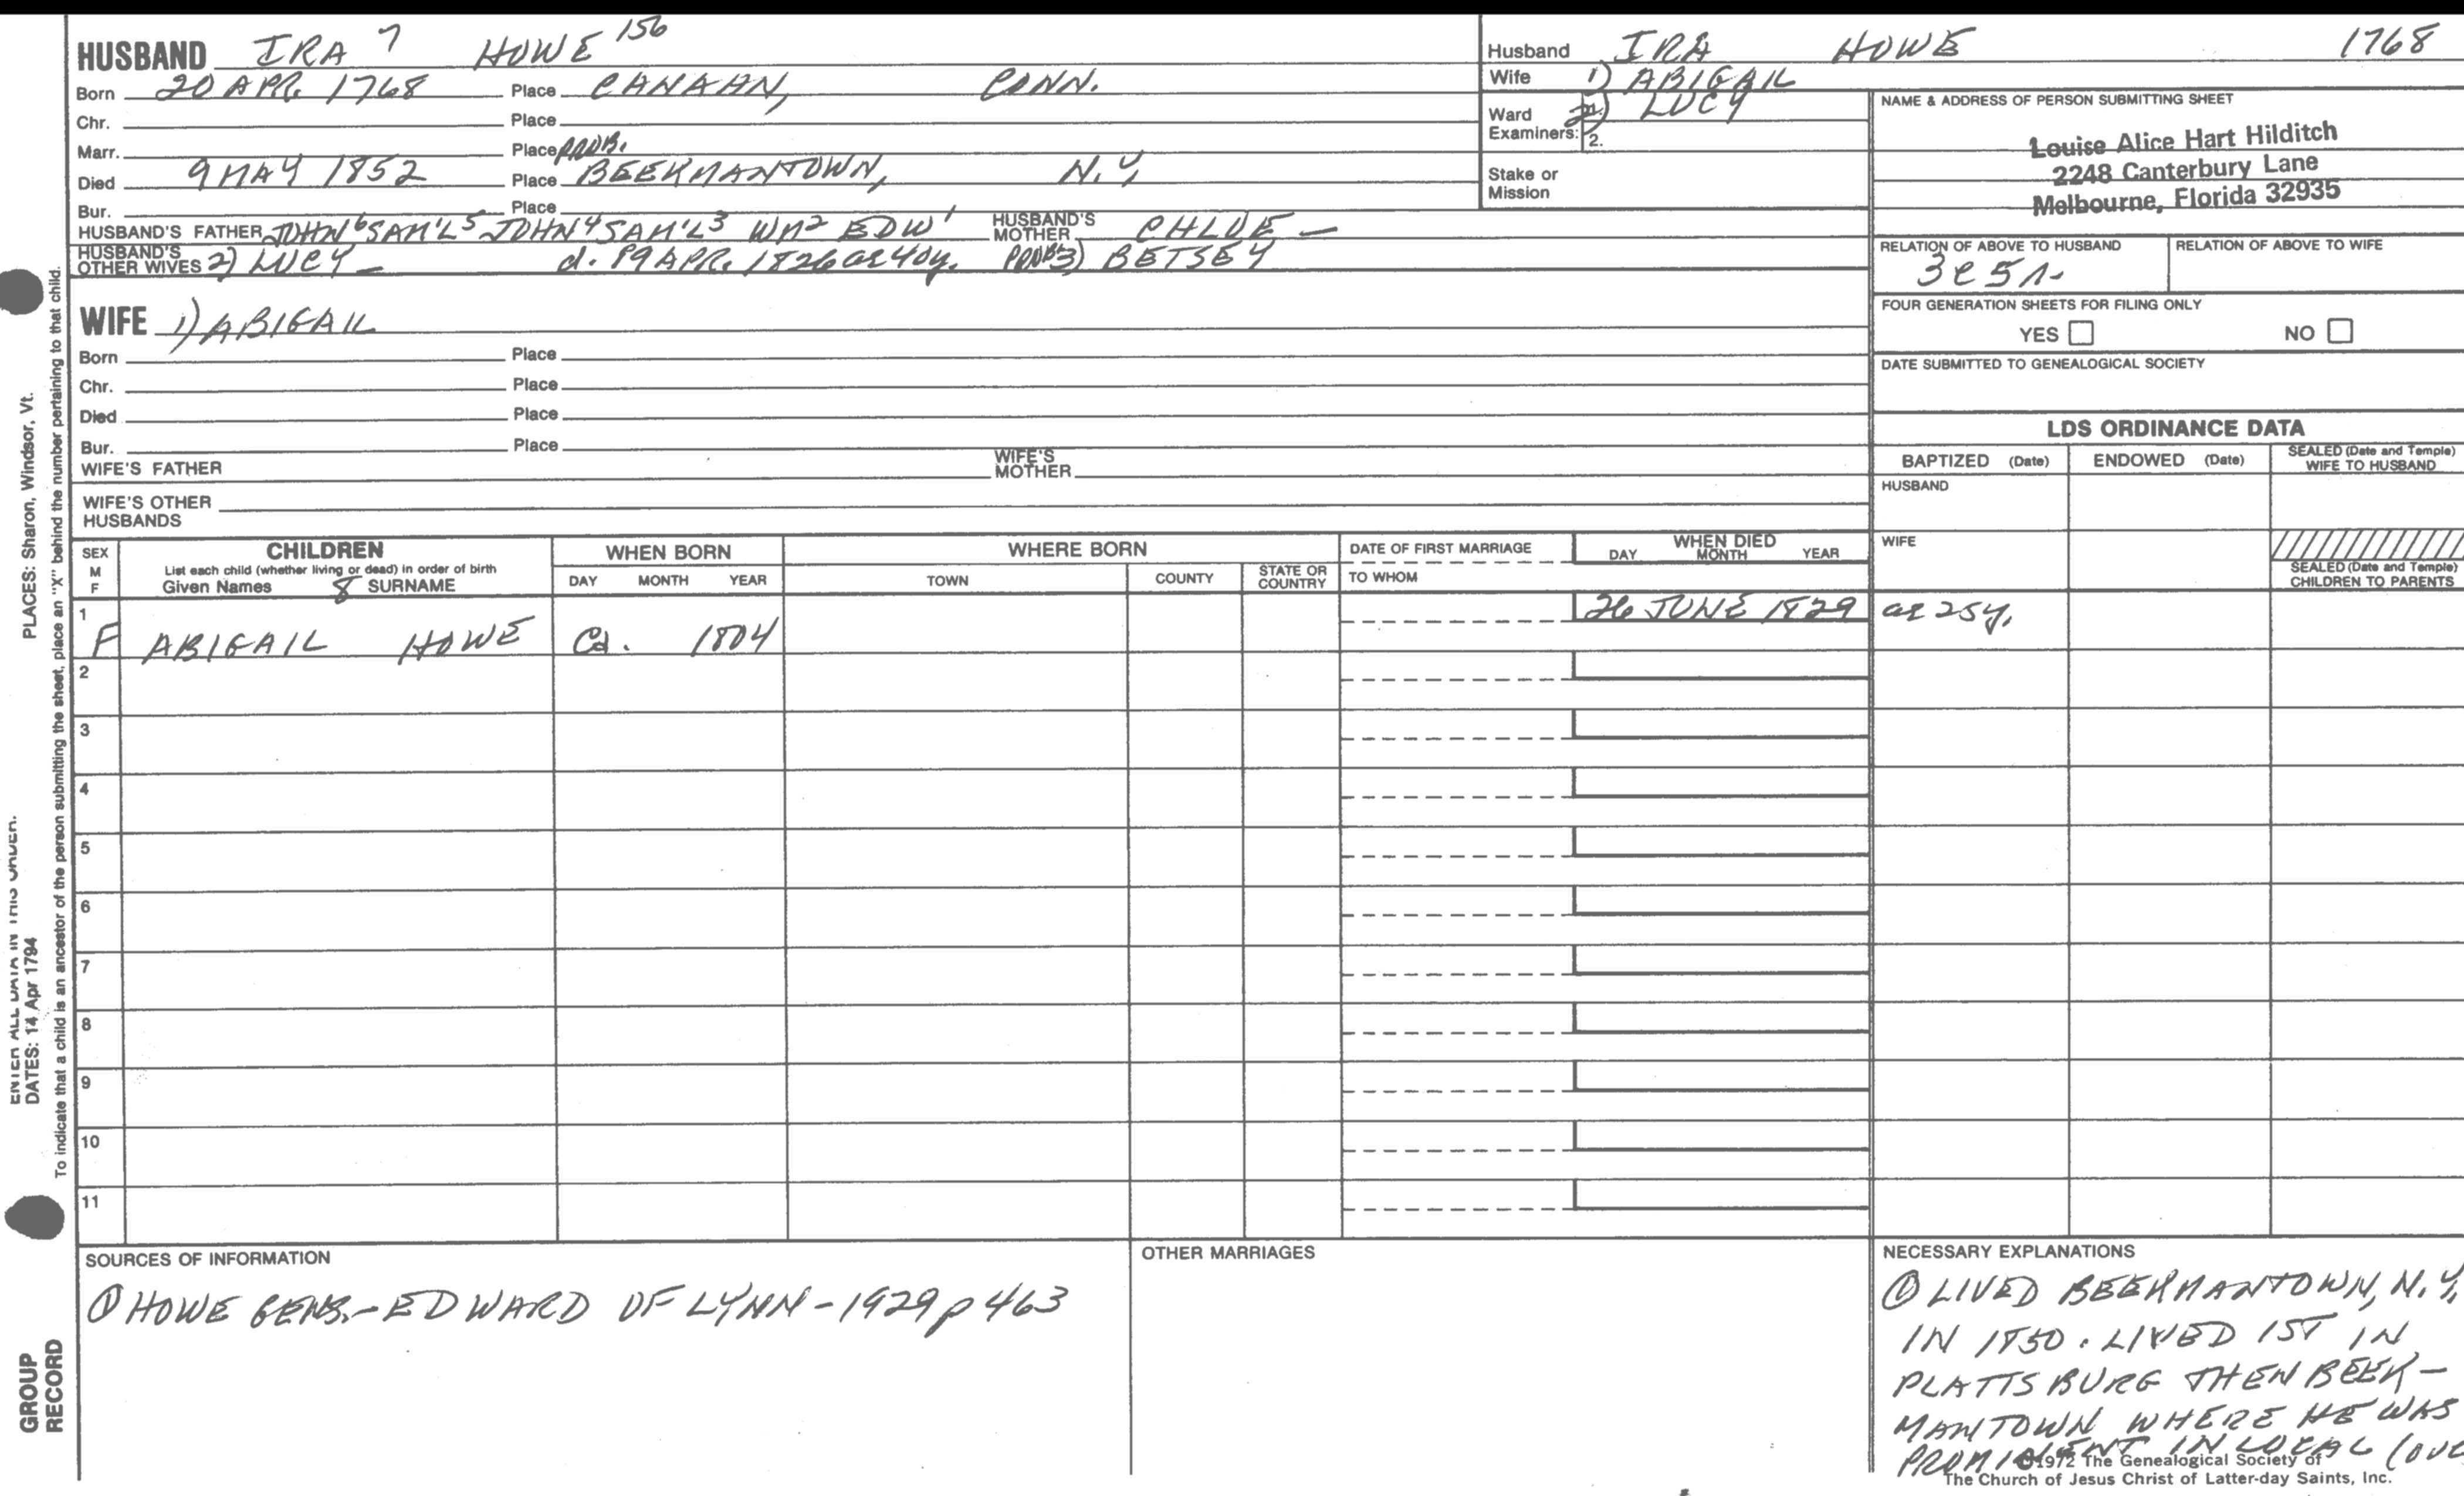 HUSBAND IRA 7 HOWE 156
Born 20 APR. 1768 Place CANAAN, CONN.
Chr. Place
Marr. Place PROB.
Died 9 MAY 1852 Place BEEKMANTOWN, N.Y.
Bur. Place
HUSBAND'S FATHER JOHN 6 SAM'L 5 JOHN 4 SAM'L 3 WM 2 EDW 1 HUSBAND'S MOTHER CHLOE —
HUSBAND'S OTHER WIVES 2) LUCY — d. 19 APR. 1826 ae 40y. PROB 3) BETSEY
WIFE 1) ABIGAIL
Born Place
Chr. Place
Died Place
Bur. Place
WIFE'S FATHER WIFE'S MOTHER
WIFE'S OTHER HUSBANDS
Husband IRA HOWE 1768
Wife 1) ABIGAIL
2) LUCY
Ward
Examiners: 2.
Stake or Mission
NAME & ADDRESS OF PERSON SUBMITTING SHEET
Louise Alice Hart Hilditch
2248 Canterbury Lane
Melbourne, Florida 32935
RELATION OF ABOVE TO HUSBAND RELATION OF ABOVE TO WIFE
3c5r
FOUR GENERATION SHEETS FOR FILING ONLY
YES NO
DATE SUBMITTED TO GENEALOGICAL SOCIETY
LDS ORDINANCE DATA
BAPTIZED (Date) ENDOWED (Date) SEALED (Date and Temple) WIFE TO HUSBAND
HUSBAND
WIFE
SEALED (Date and Temple) CHILDREN TO PARENTS
SEX M F
CHILDREN
List each child (whether living or dead) in order of birth
Given Names 8 SURNAME
WHEN BORN
DAY MONTH YEAR
WHERE BORN
TOWN COUNTY STATE OR COUNTRY
DATE OF FIRST MARRIAGE
TO WHOM
WHEN DIED
DAY MONTH YEAR
1 F ABIGAIL HOWE Ca. 1804 26 JUNE 1829 ae 25y.
2
3
4
5
6
7
8
9
10
11
SOURCES OF INFORMATION
① HOWE GENS.-EDWARD OF LYNN-1929 p463
OTHER MARRIAGES
NECESSARY EXPLANATIONS
① LIVED BEEKMANTOWN, N.Y.
IN 1850. LIVED 1ST IN
PLATTSBURG THEN BEEK-
MANTOWN WHERE HE WAS
PROMINENT IN LOCAL
©1972 The Genealogical Society of
The Church of Jesus Christ of Latter-day Saints, Inc.
PLACES: Sharon, Windsor, Vt.
ENTER ALL DATA IN THIS ORDER.
DATES: 14 Apr 1794
To indicate that a child is an ancestor of the person submitting the sheet, place an "X" behind the number pertaining to that child.
GROUP
RECORD